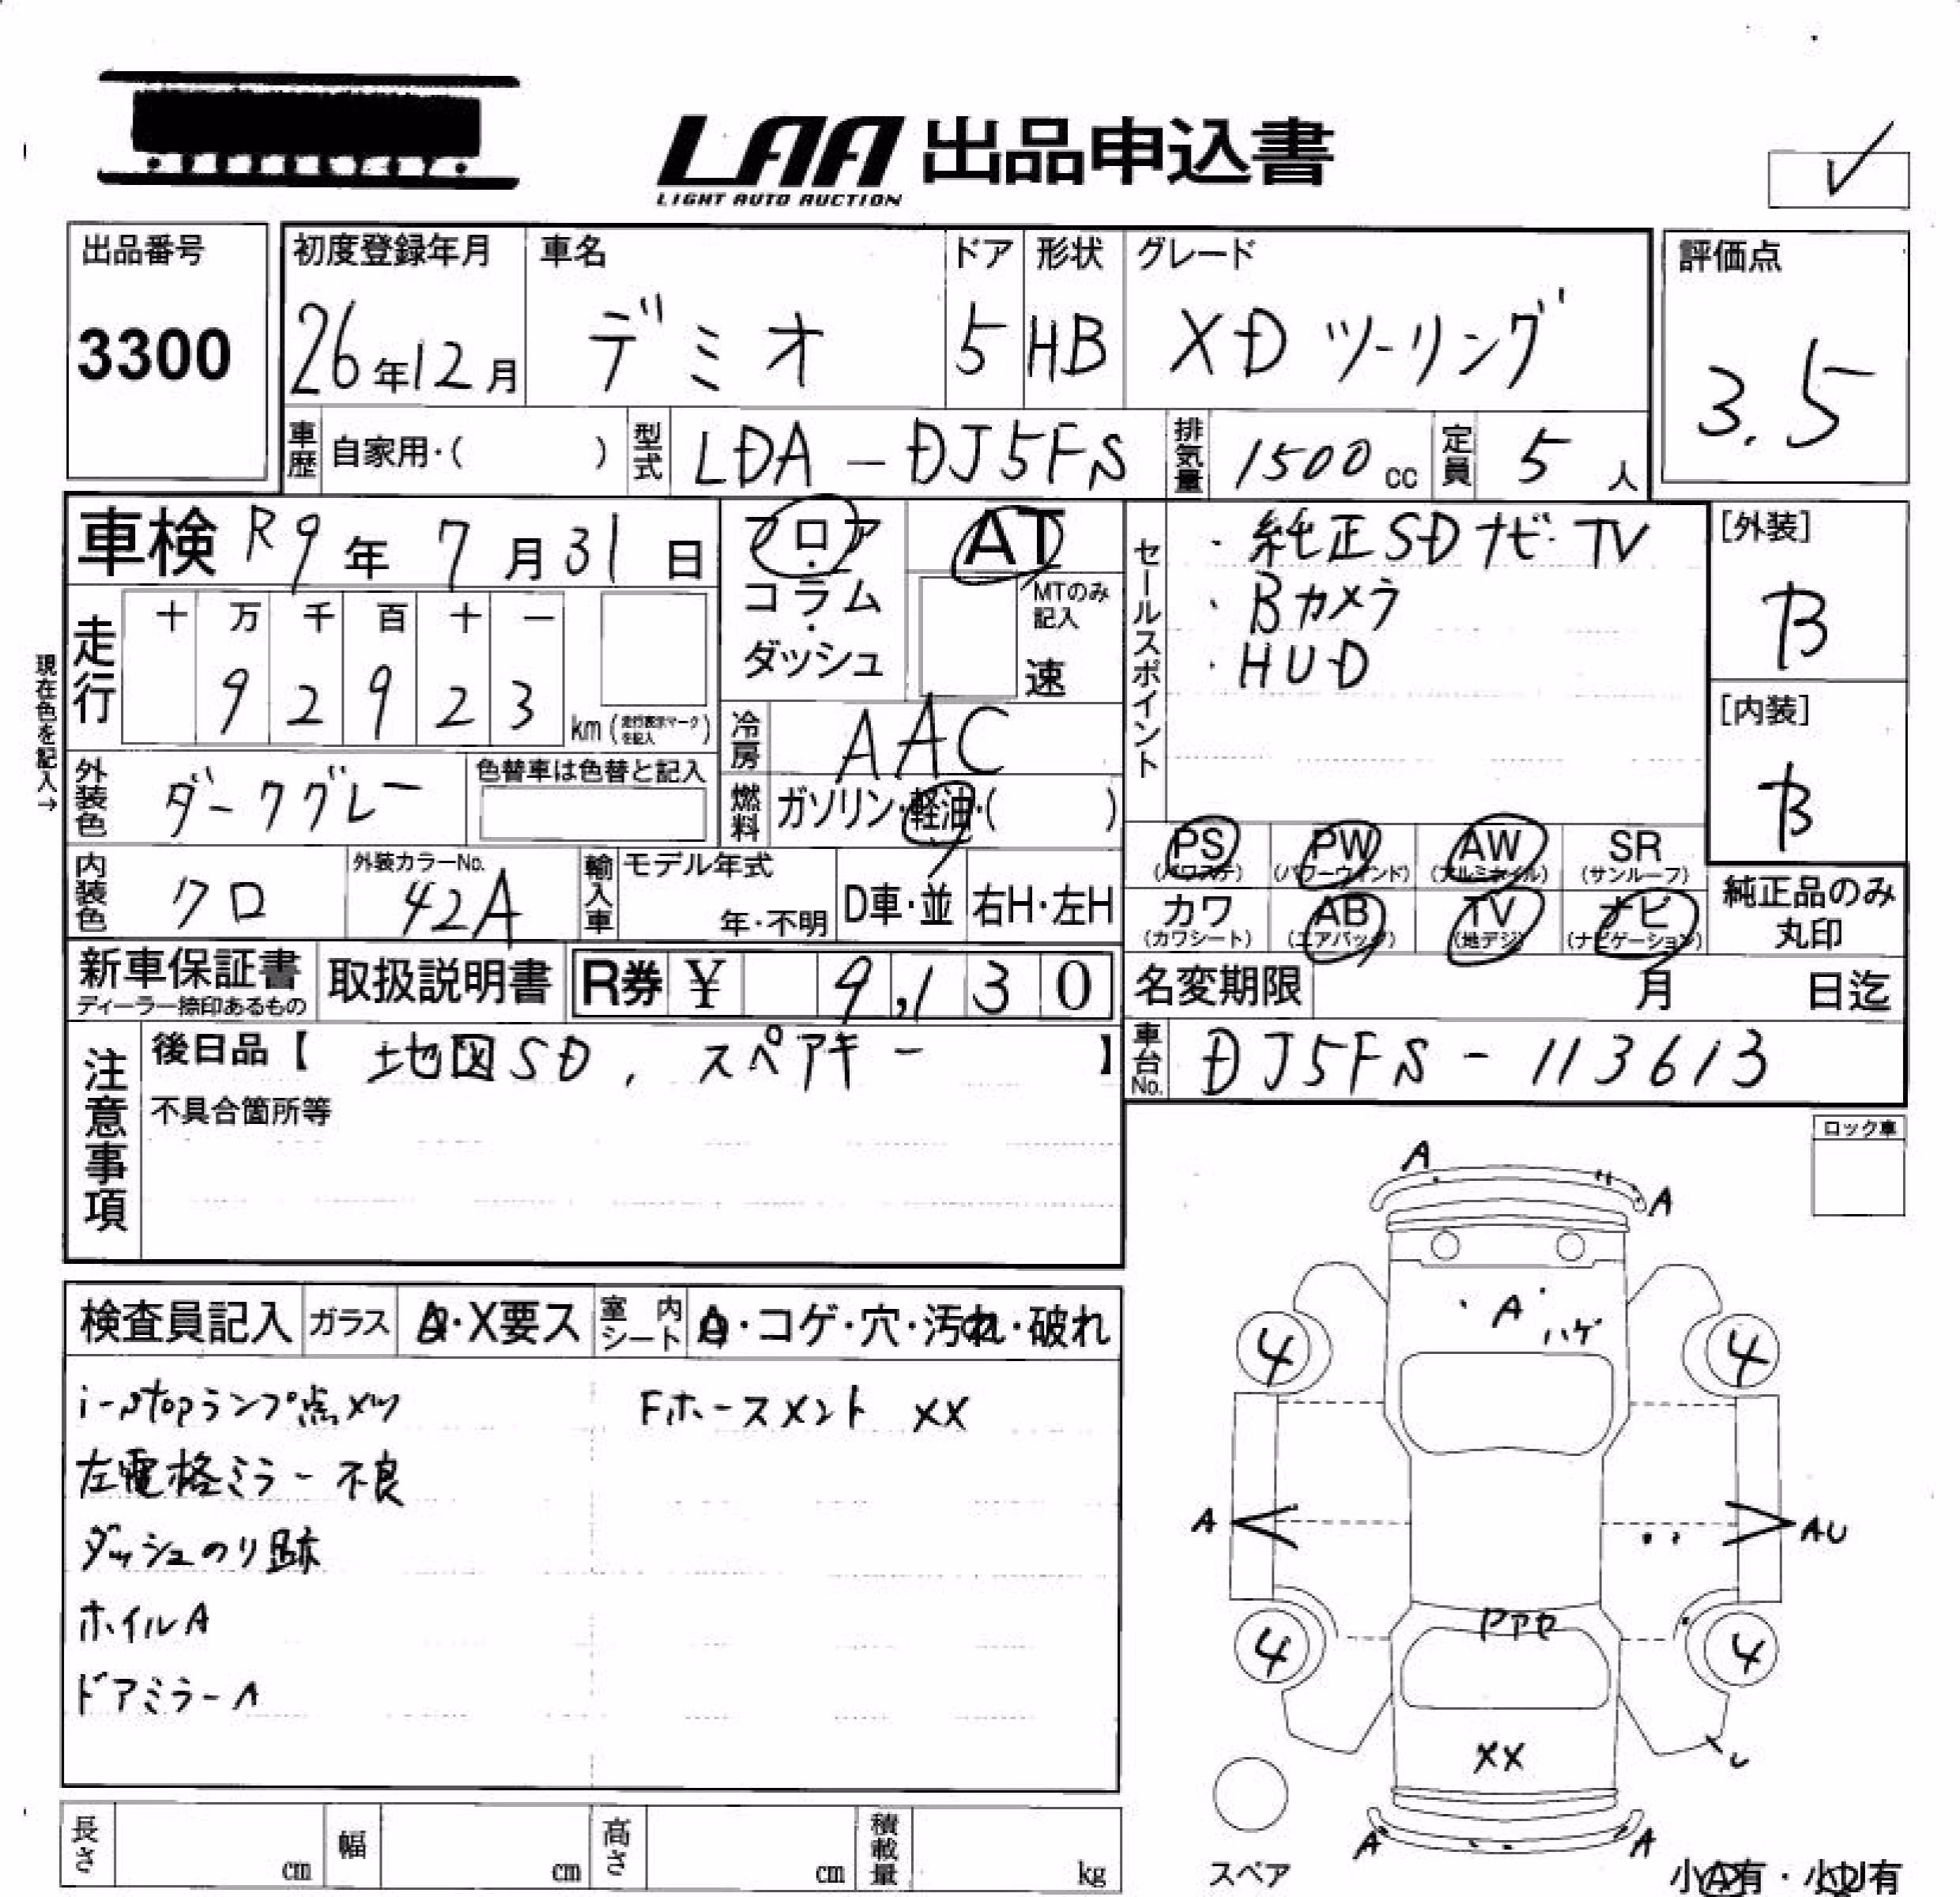 LAA 出品申込書
LIGHT AUTO AUCTION
出品番号
3300
初度登録年月
26年12月
車名
デミオ
ドア
5
形状
HB
グレード
XD ツーリング
評価点
3.5
車歴 自家用・( )
型式 LDA-DJ5FS
排気量 1500cc
定員 5人
車検 R9年7月31日
フロア・コラム・ダッシュ
AT
MTのみ記入
速
現在色を記入→
走行
十 万 千 百 十 一
9 2 9 2 3
km (走行表示マークを記入)
冷房 AAC
燃料 ガソリン・軽油・( )
外装色 ダークグレー
色替車は色替と記入
内装色 クロ
外装カラーNo. 42A
輸入車 モデル年式
年・不明
D車・並
右H・左H
セールスポイント
・純正SDナビ・TV
・Bカメラ
・HUD
[外装]
B
[内装]
B
PS (パワステ)
PW (パワーウィンド)
AW (アルミホイル)
SR (サンルーフ)
カワ (カワシート)
AB (エアバッグ)
TV (地デジ)
ナビ (ナビゲーション)
純正品のみ丸印
新車保証書
ディーラー捺印あるもの
取扱説明書
R券 ¥ 9,130
名変期限 月 日迄
車台No. DJ5FS-113613
注意事項
後日品【 地図SD, スペアキー 】
不具合箇所等
ロック車
検査員記入
ガラス A・X要ス
室内シート A・コゲ・穴・汚れ・破れ
i-stopランプ点メツ
Fホースメント XX
左電格ミラー不良
ダッシュのり跡
ホイルA
ドアミラーA
A
A
A
ハゲ
4
4
A
AU
Pアセ
4
4
XX
U
A
A
スペア
小A有・小U有
長さ cm
幅 cm
高さ cm
積載量 kg